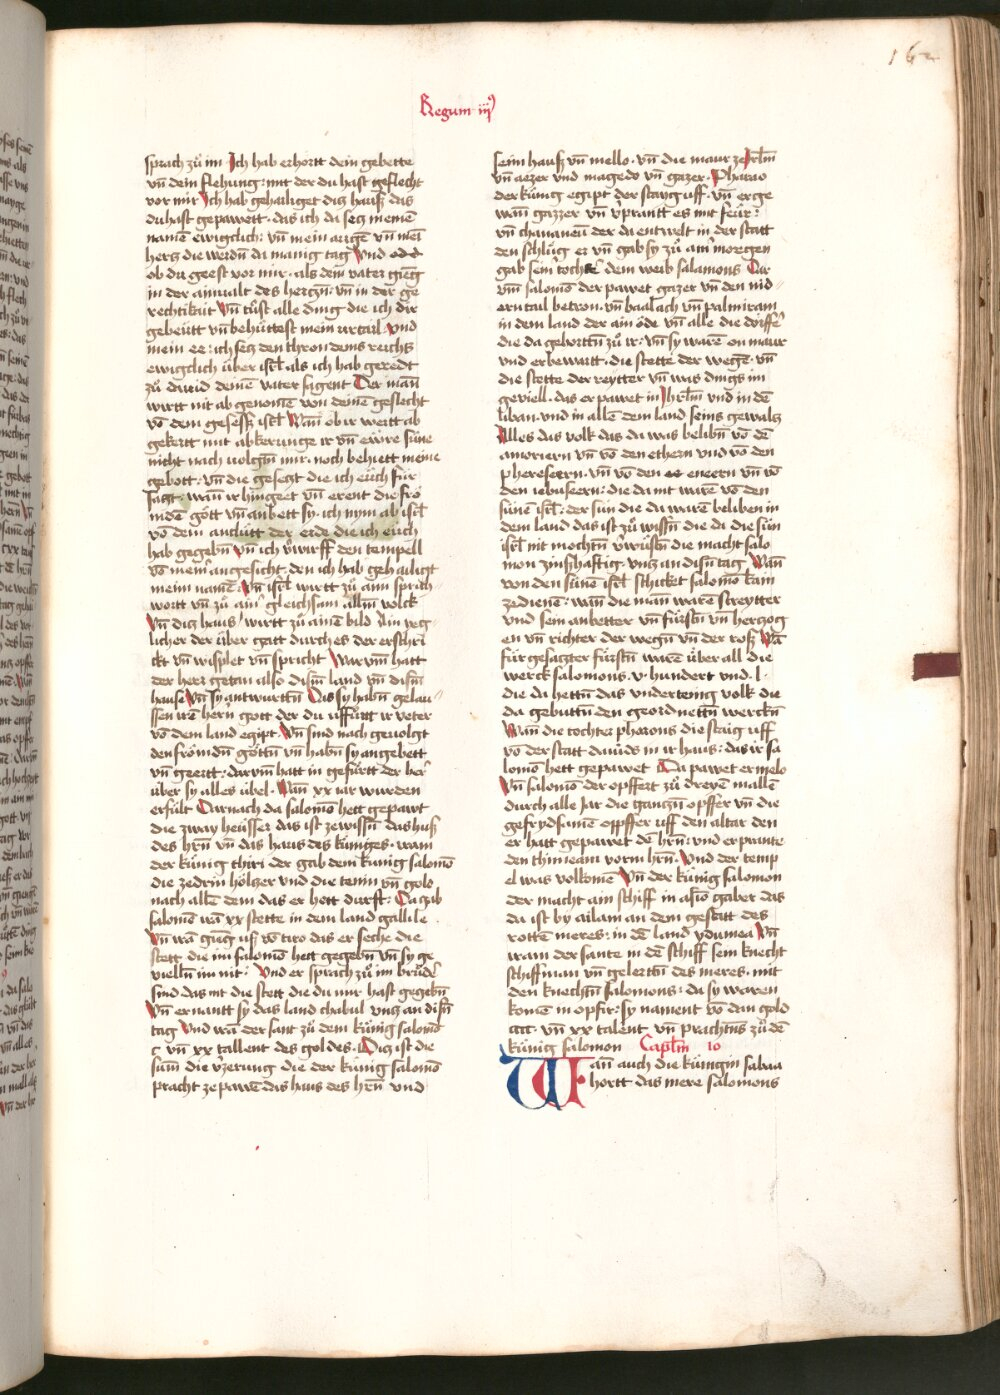 162
Regum iij
sprach zů im Ich hab erhortt dein gebette
vn̄ dein flehung: mit der du hast geflecht
vor mir Ich hab gehailiget dis hauß das
du hast gepawett · das ich da secz meinē
namē ewigclich: vn̄ mein augē vn̄ mei
hercz die werdn̄ da manig tag Vnd
ob du geest vor mir · als dein vater gieng
in der ainualt des herczn̄: vn̄ in der ge
rechtikait Vn̄ tůst alle ding die ich dir
gebeütt vn̄ behüttest mein vrtail · vnd
mein ee: ich secz den thron deins reichs
ewigclich über isrl̄ als ich hab geredt
zů dauid deinē vater sagent Der man̄
wirtt nit ab genomē von deinē geslecht
vō dem gesessz isrl̄ Wan̄ ob ir wertt ab
gekertt mit abkerunge ir vn̄ ewre süne
nicht nach uolgtn̄ mir · noch behiett meine
gebott: vn̄ die gesetzt die ich eüch für
sagt · wan̄ ir hingeet vn̄ erent die frö
mdē gött vn̄ anbett sy · ich nym ab isrl̄
vō dem antlütt der erde die ich euch
hab gegebn̄ Vn̄ ich v̓wirff den tempell
vō mein̓ angesicht · den ich hab geh ailigt
meim namē: Vn̄ isrl̄ wirtt zů aim sprich
wortt vn̄ zů aim̓ gleichsam allm̄ volck
Vn̄ dis haus / wirtt zů ainē bild Ain yeg
licher der über gatt durch es der erschri
ckt vn̄ wisplet vn̄ spricht Warvm̄ hatt
der herz getan also dism̄ land vn̄ dism̄
hause Vn̄ sy antwurttn̄ Das sy habn̄ gelau
ssen irē hern̄ gott der du vßfürtt ir veter
vō dem land egipt · Vn̄ sind nach geuolgt
den frömdn̄ göttn̄ vn̄ habn̄ sy angebett
vn̄ geertt: darvm̄ hatt in gefürtt der her̓
über sy alles übel · Wan̄ xx iar wurden
erfült Darnach da salomō hett gepawt
die zway heüsser das ist zewissn̄ das huß
des hrn̄ vn̄ das haus des küniges · wan
der künig thiri der gab dem künig salomō
die zedrin hölczer vnd die tenin vn̄ gold
nach allē dem das er hett durft: Da gab
salomō irā xx stette in dem land gallile ·
Vn̄ irā gieng uß vō tiro das er seche die
stett die im salomō hett gegebn̄ vn̄ sy ge
vielln̄ im nit: Vnd er sprach zů im brůder
sind das nit die stett die du mir hast gegebn̄
Vn̄ er nantt sy das land chabul vncz an disn̄
tag Vnd irā der sant zů dem künig salomō
c vn̄ xx tallent des goldes · Dis ist die
sum̄ die v̓zerung die der künig salomō
pracht ze pawē das haus des hrn̄ vnd
seim hauß vn̄ mello · vn̄ die maur ze Jrl̄m
vn̄ aezer vnd magedo vn̄ gazer · Pharao
der künig egipt der staiyg uff · vn̄ erge
wan̄ gazzer vn̄ v̓prantt es mit feür:
vn̄ chananeū der da entwelt in der statt
den schlůg er vn̄ gab sy zů aim̓ morgen
gab sein̓ tocht̓ dem weib salamons Dar
vm̄ salomō der pawet gazer vn̄ den nid
ern tail betron · vn̄ baalach vn̄ palmiram
in dem land der ain öde vn̄ alle die dörffer
die da gehorttn̄ zů ir: vn̄ sy warē on maur
vnd erbewatt · die stette der wegē · vn̄
die stette der reytter vn̄ was dings im
geviell · das er pawet in Jhrl̄m vnd in dē
liban · vnd in allē dem land seins gewalcz
Alles das volk das da was belibn̄ vō dē
amoriern vn̄ vō den ethern vnd vō den
pheresern · vn̄ vō den eneern vn̄ vō
den iebuseern: die da nit warē vō den
sünen isrl̄: der sün die da warē beliben in
dem land das ist zů wissn̄ die da die sün
isrl̄ nit mochtn̄ v̓wüstn̄ die macht salo
mon zinßhafftig · vncz an disn̄ tag Wan̄
von den sünen isrl̄ schicket salomō kain
zedienē: wan̄ die man̄ warē streytter
vnd sein anbetter vn̄ fürstn̄ vn̄ herczog
en vn̄ richter der wegn̄ vn̄ der roß Wā
für gesaczter fürstn̄ warē über all die
werck salomons · v · hundert vnd · l ·
die da hettn̄ das vndertenig volk die
da gebuttn̄ den geordnettn̄ werckn̄
Wan̄ die tochter pharons die staig uff
vō der statt dauids in ir haus: das ir sa
lomō hett gepawet Da pawet er melo
Vn̄ salomō der opffert zů dreyē mallē
durch alle jar die ganczn̄ opffer vn̄ die
gefrydsamē oppffer uff den altar den
er hatt gepawet dē hrn̄: vnd er prante
den thimeam vorm hrn̄ · Vnd der temp
el was volkomē Vn̄ der künig salomon
der macht ain schiff in asio gaber das
da ist by ailam an dem gestatt des
rottē meres: in dē land ydumea Vn̄
iram der sante in dē schiff sein knecht
schiffman vn̄ gelerttn̄ des meres · mit
den knechtn̄ salomons: da sy waren
komē in opfir: sy nament vō dan gold
cccc · vn̄ xx talent vn̄ prachtens zů dē
künig salomon Capl̄m 10
Wan̄ auch die künigin sabaa
hortt das mere salomons